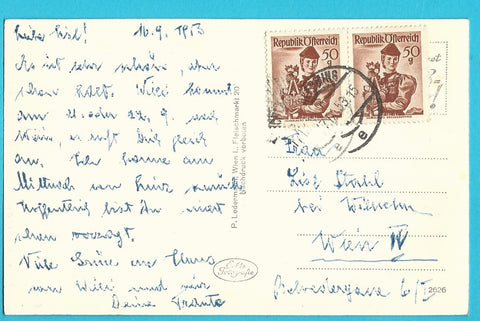 Liebe Lisl! 16.9.1953
Es ist sehr schön, aber
schon kalt. Willi kommt
am 21. oder 22. 9. nach
Wien, er ruft Dich gleich
an. Ich komme am
Mittwoch von Linz zurück
Hoffentlich bist Du nicht
schon
Viele Grüße und Küsse
von Willi und
Deine
P. Ledermann, Wien I., Fleischmarkt 20
Nachdruck verboten
Echte
Fotografie
Republik Österreich
50
g
Republik Österreich
50
g
Frau
Lisl Stahl
bei
Wien IV
Belvederegasse 6/
2626